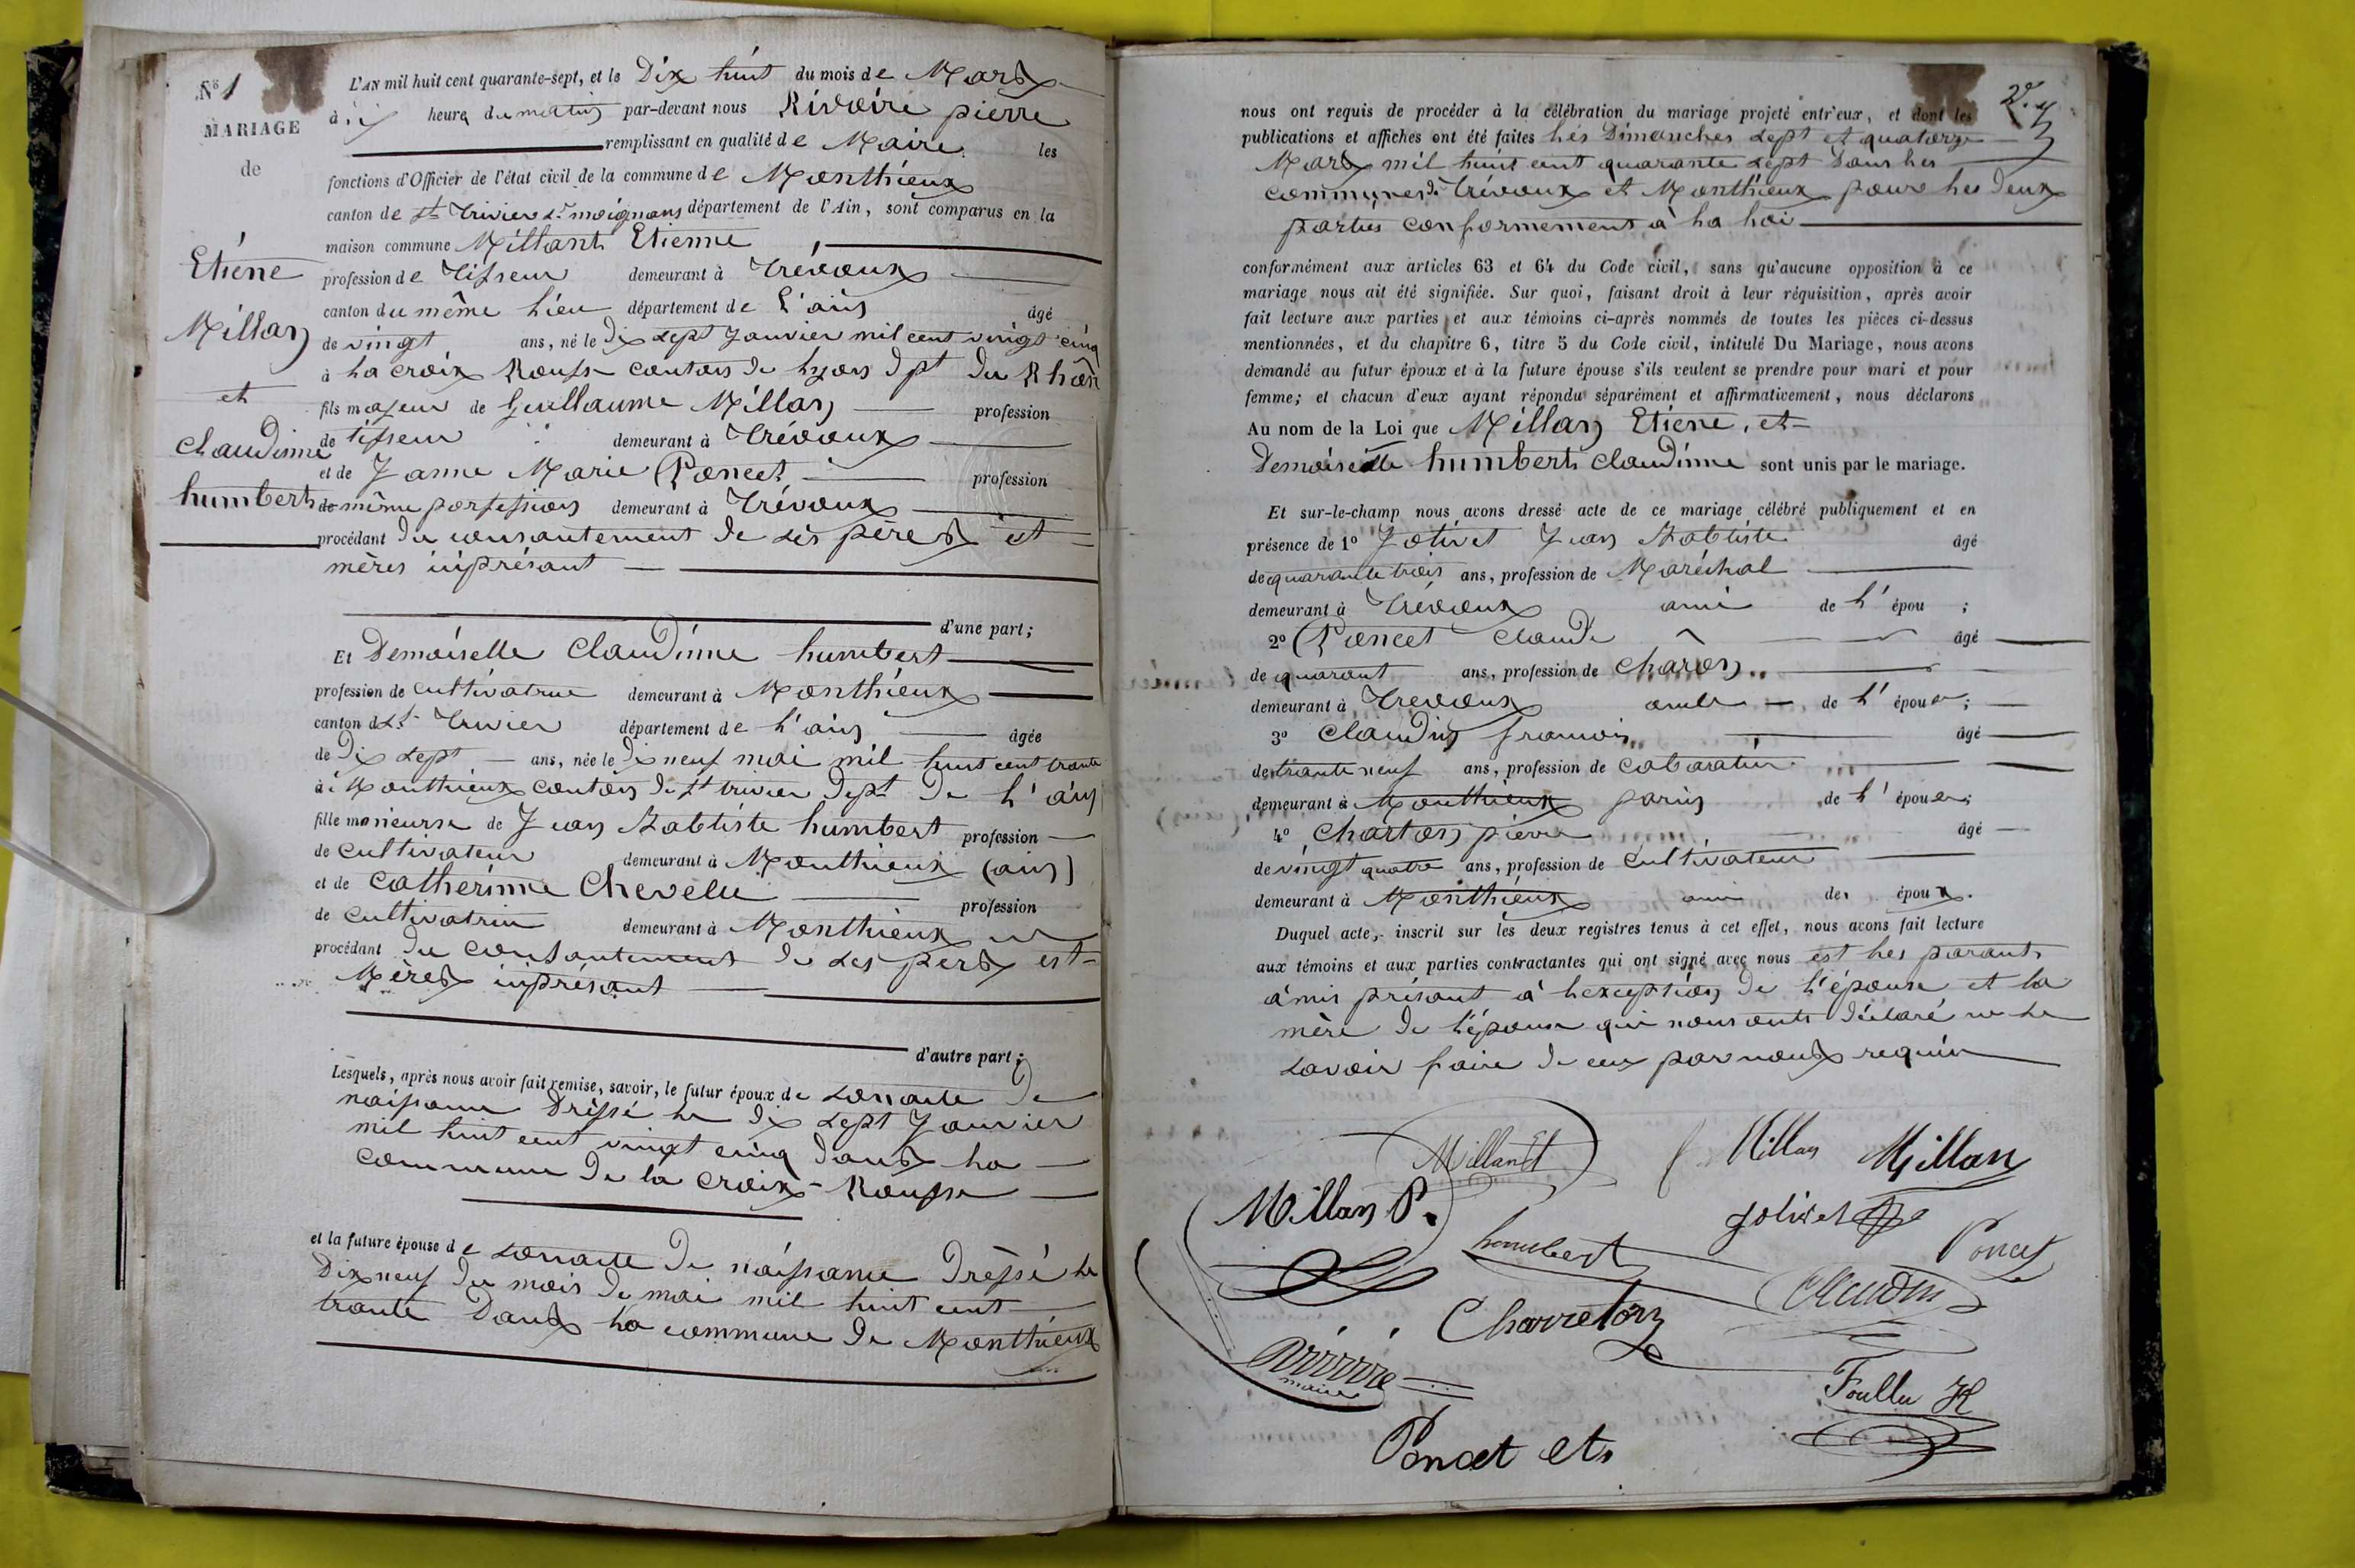 N° 1
MARIAGE
de
Etiéne
Millan
et
Claudinne
humbert
L'AN mil huit cent quarante-sept, et le Dix huit du mois de Mars
à heure du matin par-devant nous Rivoire pierre
remplissant en qualité de Maire les
fonctions d'Officier de l'état civil de la commune de Monthieux
canton de St Trivier Sr moignans département de l'Ain, sont comparus en la
maison commune Millant Etienne
profession de Tisseur demeurant à Trévoux
canton du même lieu département de l'ain âgé
de vingt ans, né le dix sept Janvier mil cent vingt cinq
à la croix Rousse canton de lyon dpt du Rhône
fils majeur de Guillaume Millan profession
de tisseur demeurant à Trévoux
et de Janne Marie Poncet profession
de même porfession demeurant à Trévoux
procédant du consantement de ses pères et
mères inprésant
d'une part;
Et Demoiselle Claudinne humbert
profession de cultivatrice demeurant à Monthieux
canton de St Trivier département de l'ain âgée
de dix sept ans, née le dix neuf mai mil huit cent trante
à Monthieux canton de St trivier dept de l'ain
fille mineurse de Jean Babtiste humbert profession
de cultivateur demeurant à Monthieux (ain)
et de Catherinne Chevelu profession
de cultivatrice demeurant à Monthieux
procédant du consantement de ses pers et
Mères inprésant
d'autre part;
Lesquels, après nous avoir fait remise, savoir, le futur époux de sonacte de
naissance Dréssé le dix sept Janvier
mil huit cent vingt cinq dans la
commune de la Croix-Rousse
et la future épouse de sonacte de naissance dréssé le
Dix neuf du mois de mai mil huit cent
trante dans la commune de Monthieux
nous ont requis de procéder à la célébration du mariage projeté entr'eux, et dont les
publications et affiches ont été faites les Dimanches sept et quatorze
Mars mil huit cent quarante sept dans les
communes de Trévoux et Monthieux pour les deux
parties conformement à la loi
conformément aux articles 63 et 64 du Code civil, sans qu'aucune opposition à ce
mariage nous ait été signifiée. Sur quoi, faisant droit à leur réquisition, après avoir
fait lecture aux parties et aux témoins ci-après nommés de toutes les pièces ci-dessus
mentionnées, et du chapitre 6, titre 5 du Code civil, intitulé Du Mariage, nous avons
demandé au futur époux et à la future épouse s'ils veulent se prendre pour mari et pour
femme; et chacun d'eux ayant répondu séparément et affirmativement, nous déclarons
Au nom de la Loi que Millan Etiene, et
Demoiselle humbert claudinne sont unis par le mariage.
Et sur-le-champ nous avons dressé acte de ce mariage célébré publiquement et en
présence de 1° Jolivet Jean Babtiste âgé
de quarante trois ans, profession de Maréchal
demeurant à Trévoux ami de l'épou ;
2° Poncet Claude âgé
de quarant ans, profession de Charon
demeurant à Trevoux oncle de l'épou ;
3° Claudin françois âgé
de trante neuf ans, profession de cabaratier
demeurant à Monthieux de l'épou ;
4° Charton pierre âgé
de vingt quatre ans, profession de cultivateur
demeurant à Monthieux ami de époux.
Duquel acte, inscrit sur les deux registres tenus à cet effet, nous avons fait lecture
aux témoins et aux parties contractantes qui ont signé avec nous est les parant
amis présant à l'exception de l'épouse et la
mère de l'épouse qui nous ont déclaré ne le
savoir faire de ceux par nous requis
Millan Et Millan Millan
Millan P. Jolivet
humbert Poncet
Claudin
Charreton
Rivoire
maire
Foullu
Poncet